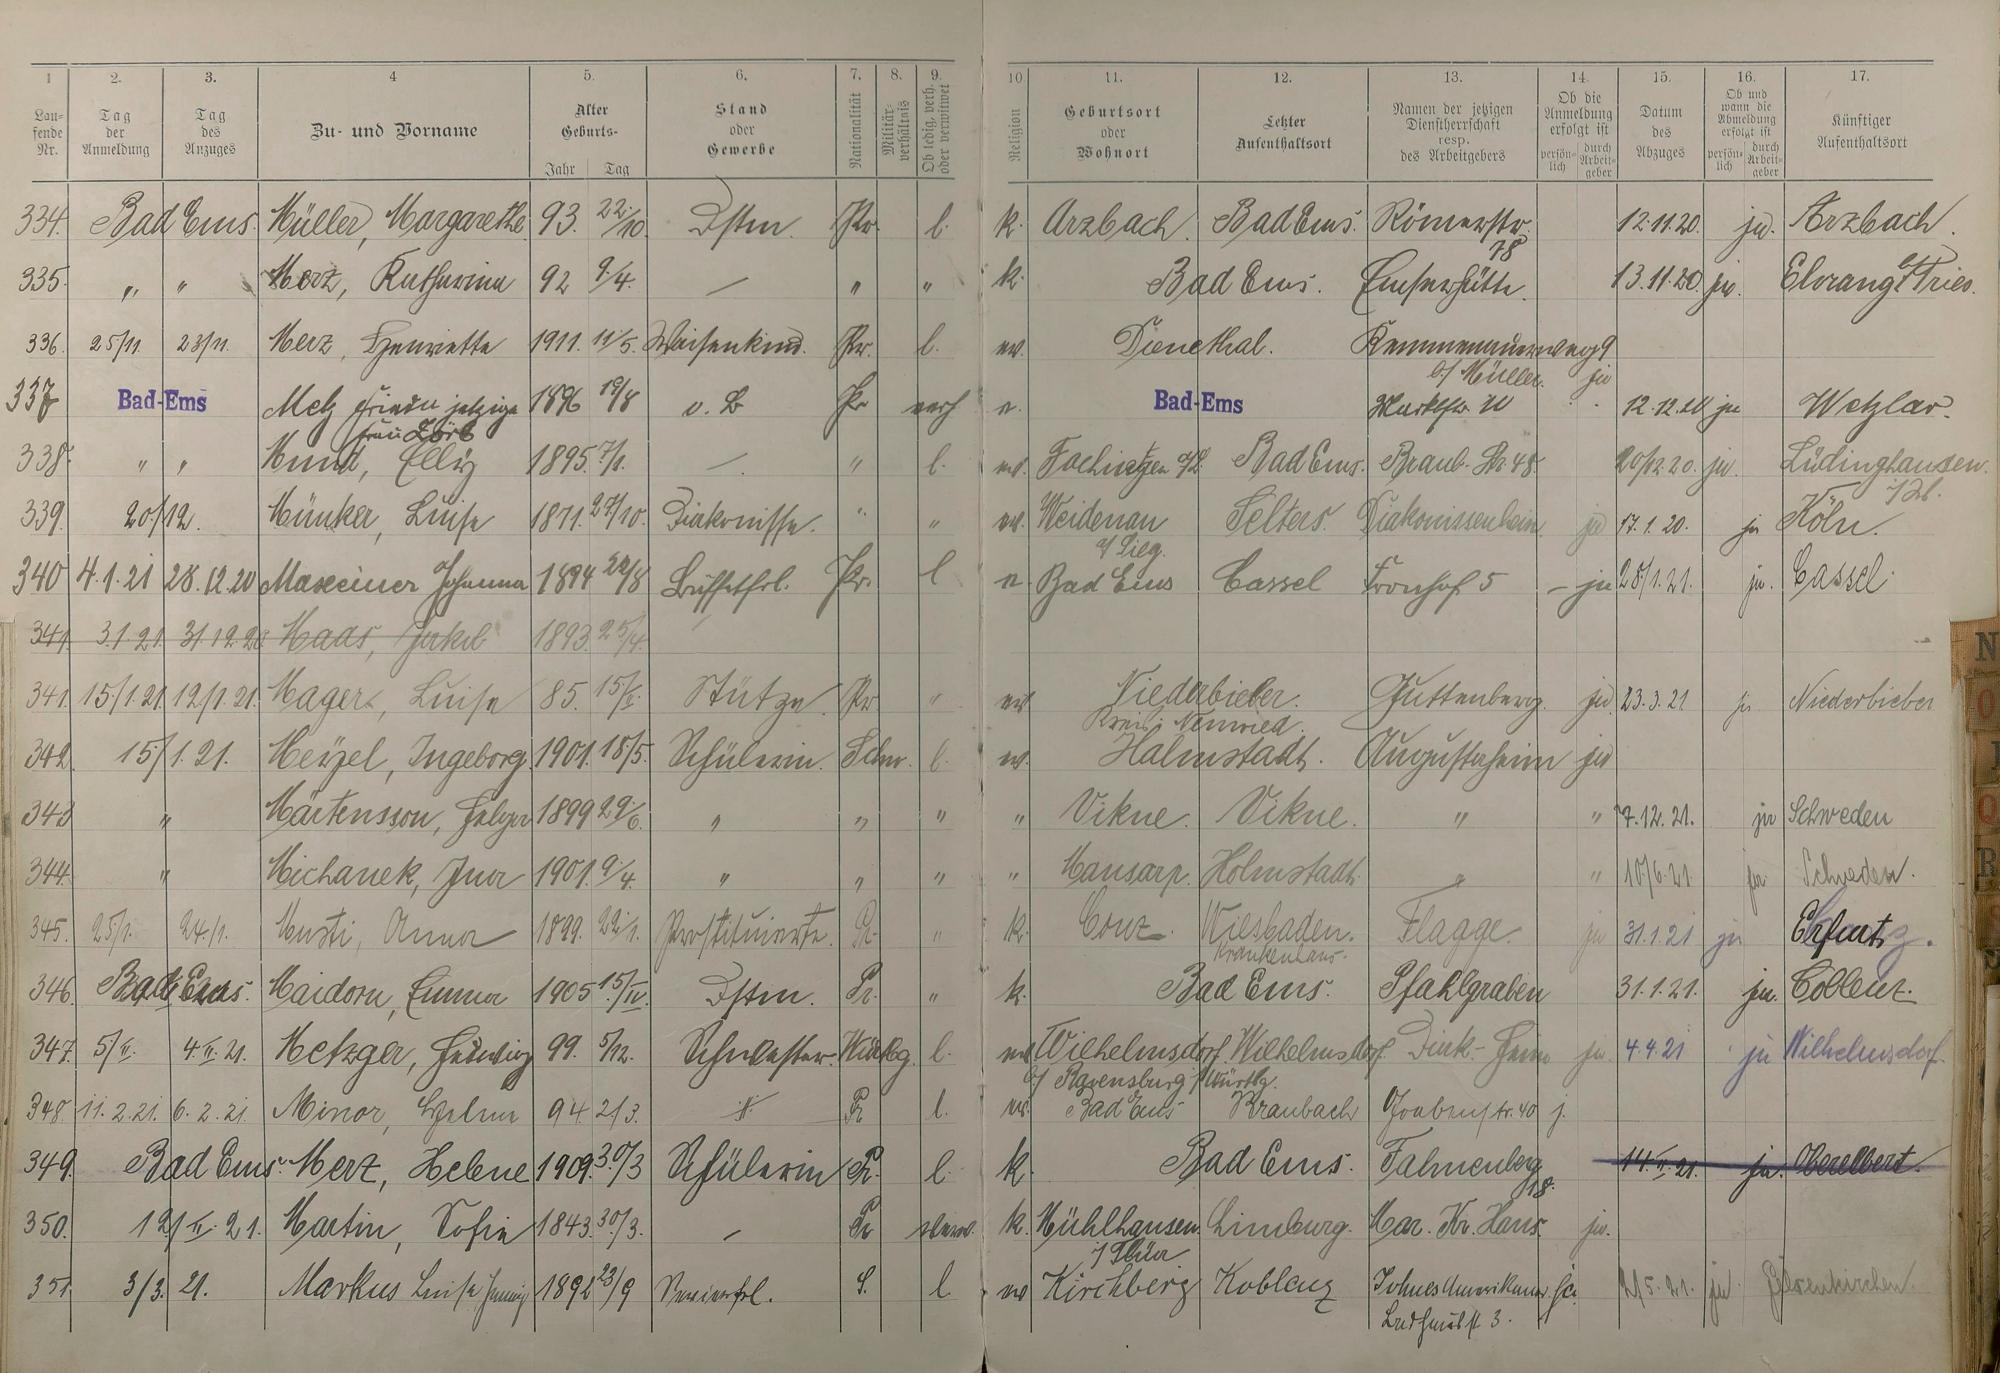 1 2. 3. 4 5. 6. 7. 8. 9. 10 11. 12. 13. 14. 15. 16. 17.
Laufende Nr. Tag der Anmeldung Tag des Anzuges Zu- und Vorname Alter Geburts- Jahr Tag Stand oder Gewerbe Nationalität Militärverhältnis Ob ledig, verh. oder verwitwet Religion Geburtsort oder Wohnort Letzter Aufenthaltsort Namen der jetzigen Dienstherrschaft resp. des Arbeitgebers Ob die Anmeldung erfolgt ist persönlich durch Arbeitgeber Datum des Abzuges Ob und wann die Abmeldung erfolgt ist persönlich durch Arbeitgeber Künftiger Aufenthaltsort
334. Bad Ems. Müller, Margarethe 93. 22./10. Dstm. Pr. l. k. Arzbach. Bad Ems. Römerstr. 78 12.11.20. ja. Arzbach.
335. " " Merz, Katharina 92 9./4. — " " k. Bad Ems. Emserhütte. 13.11.20. ja.
336. 25/11. 23/11. Merz, Henriette 1911. 11/5. Waisenkind. Pr. l. ev. Dienethal. Kemmenauerweg 9
b/ Müller. ja
337 Bad-Ems Metz Frieda jetzige 1896 19/8 o. B Pr verh e. Bad-Ems 12.12.20 ja Wetzlar.
Frau
338. " " Mund, Elly 1895. 7/1. — " l. ev. Fachingen a/L Bad Ems. Braub. Str. 48. 20/12.20. ja. Lüdinghausen.
339. 20./12. Münker, Luise 1871. 27/10. Diakonisse. " " ev. Weidenau Selters. Diakonissenheim ja 17.1.20. ja Köln.
a/ Sieg.
340 4.1.21 28.12.20 Maxeiner Johanna 1894 22/8 Büffetfrl. Pr. l e. Bad Ems Cassel Fronhof 5 — ja 28/1.21. ja. Cassel.
341. 3.1.21. 31.12.20. Maas, Jakob 1893. 25/4.
341. 15/1.21. 12/1.21. Mager, Luise 85. 15/II. Stütze Pr " ev Niederbieber. Guttenberg. ja. 23.3.21 ja Niederbieber
Kreis: Neuwied.
342. 15/1.21. Meizel, Ingeborg. 1901. 18/5. Schülerin. Schw. l. ev. Halmstadt. Augustaheim ja
343 " Mårtensson, Helga 1899 29./6. " " " " Vikne. Vikne. " " 7.12.21. ja Schweden
344. " Michanek, 1901. 9./4. " " " " Mansarp. Holmstadt. " " 10/6.21. ja Schweden.
345. 25/1. 24./1. Musti, Anna 1899. 22./1. Prostituierte. Pr. " k. Conz. Wiesbaden. Flagge. ja 31.1.21 ja
Krankenhaus.
346. Bad Ems. Maidorn, Emma 1905 15./IV. Dstm. Pr. " k. Bad Ems. Pfahlgraben 31.1.21. ja. Coblenz.
347. 5/II. 4.II.21. Metzger, Hedwig 99. 5/12. Schwester. Württbg. l. ev. Wilhelmsdorf. Wilhelmsdorf. Diak.-Heim ja. 4.4.21 ja Wilhelmsdorf.
b/ Ravensburg i/Württbg.
348. 11.2.21. 6.2.21. Minor, 94 2/3. Pr l. ev. Bad Ems Braubach Grabenstr. 40 j.
349. Bad Ems. Merz, Helene 1909. 30/3 Schülerin Pr. l. k. Bad Ems. Fahnenberg 18. 14.II.21. ja. Oberelbert.
350. 12/II.21. Martin, Sofie 1843. 30/3. — Pr verw. k. Mühlhausen Limburg. Mar. Kr. Haus. ja.
i/Thür
351. 3/3. 21. Markus Luise 1892 23/9 Servierfrl. l. ev Kirchberg Koblenz ja. 2/5.21. ja Gelsenkirchen.
N
O
P
Q
R
S